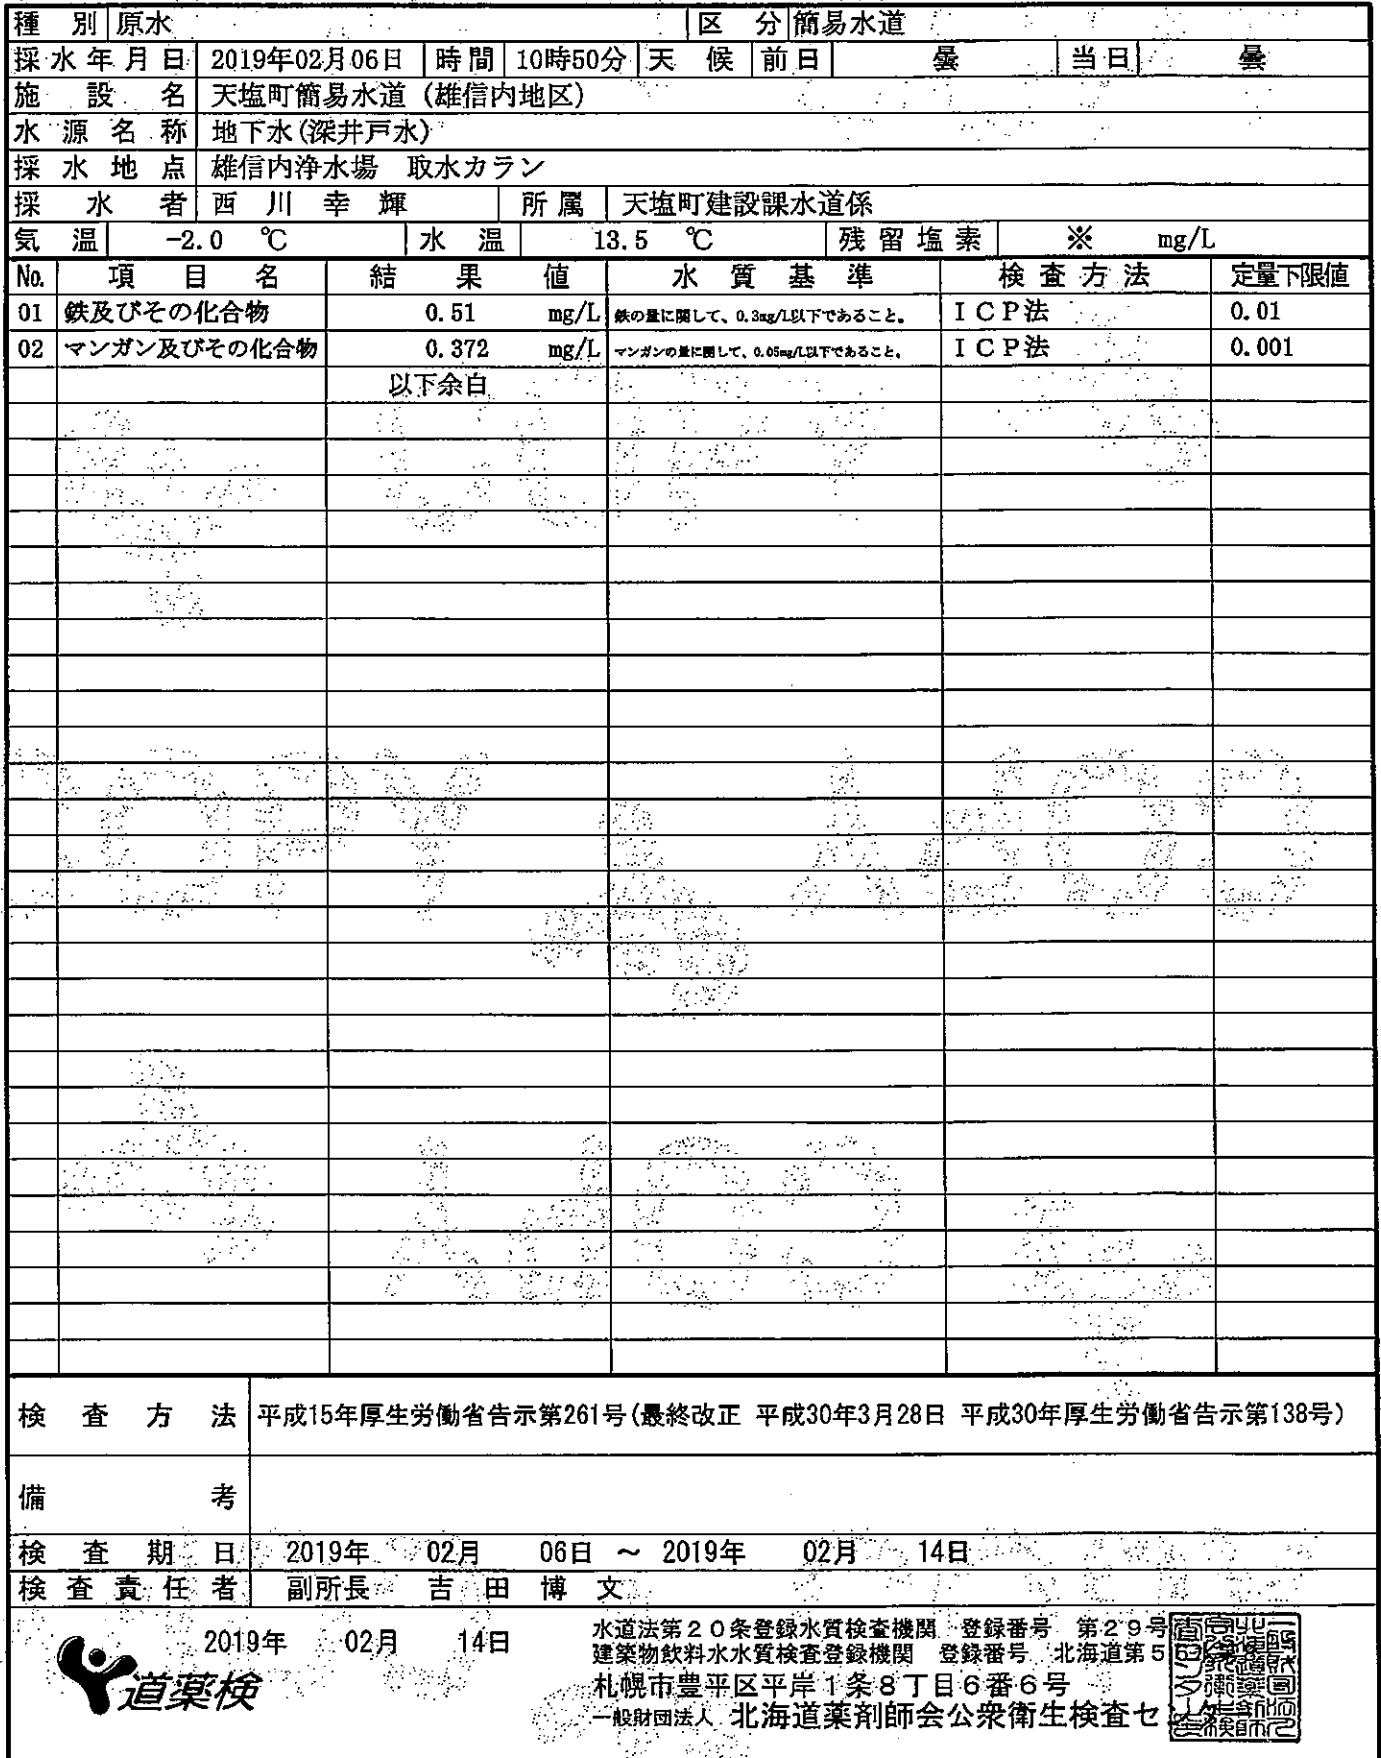 種 別 原水 区 分 簡易水道
採水年月日 2019年02月06日 時間 10時50分 天 候 前日 曇 当日 曇
施 設 名 天塩町簡易水道 (雄信内地区)
水 源 名 称 地下水(深井戸水)
採 水 地 点 雄信内浄水場 取水カラン
採 水 者 西 川 幸 輝 所属 天塩町建設課水道係
気 温 -2.0 ℃ 水 温 13.5 ℃ 残留塩素 ※ mg/L
No. 項 目 名 結 果 値 水 質 基 準 検 査 方 法 定量下限値
01 鉄及びその化合物 0.51 mg/L 鉄の量に関して、0.3mg/L以下であること。 ICP法 0.01
02 マンガン及びその化合物 0.372 mg/L マンガンの量に関して、0.05mg/L以下であること。 ICP法 0.001
以下余白
検 査 方 法 平成15年厚生労働省告示第261号(最終改正 平成30年3月28日 平成30年厚生労働省告示第138号)
備 考
検 査 期 日 2019年 02月 06日 ~ 2019年 02月 14日
検 査 責 任 者 副所長 吉 田 博 文
2019年 02月 14日
道薬検
水道法第20条登録水質検査機関 登録番号 第29号
建築物飲料水水質検査登録機関 登録番号 北海道第5
札幌市豊平区平岸1条8丁目6番6号
一般財団法人 北海道薬剤師会公衆衛生検査セ